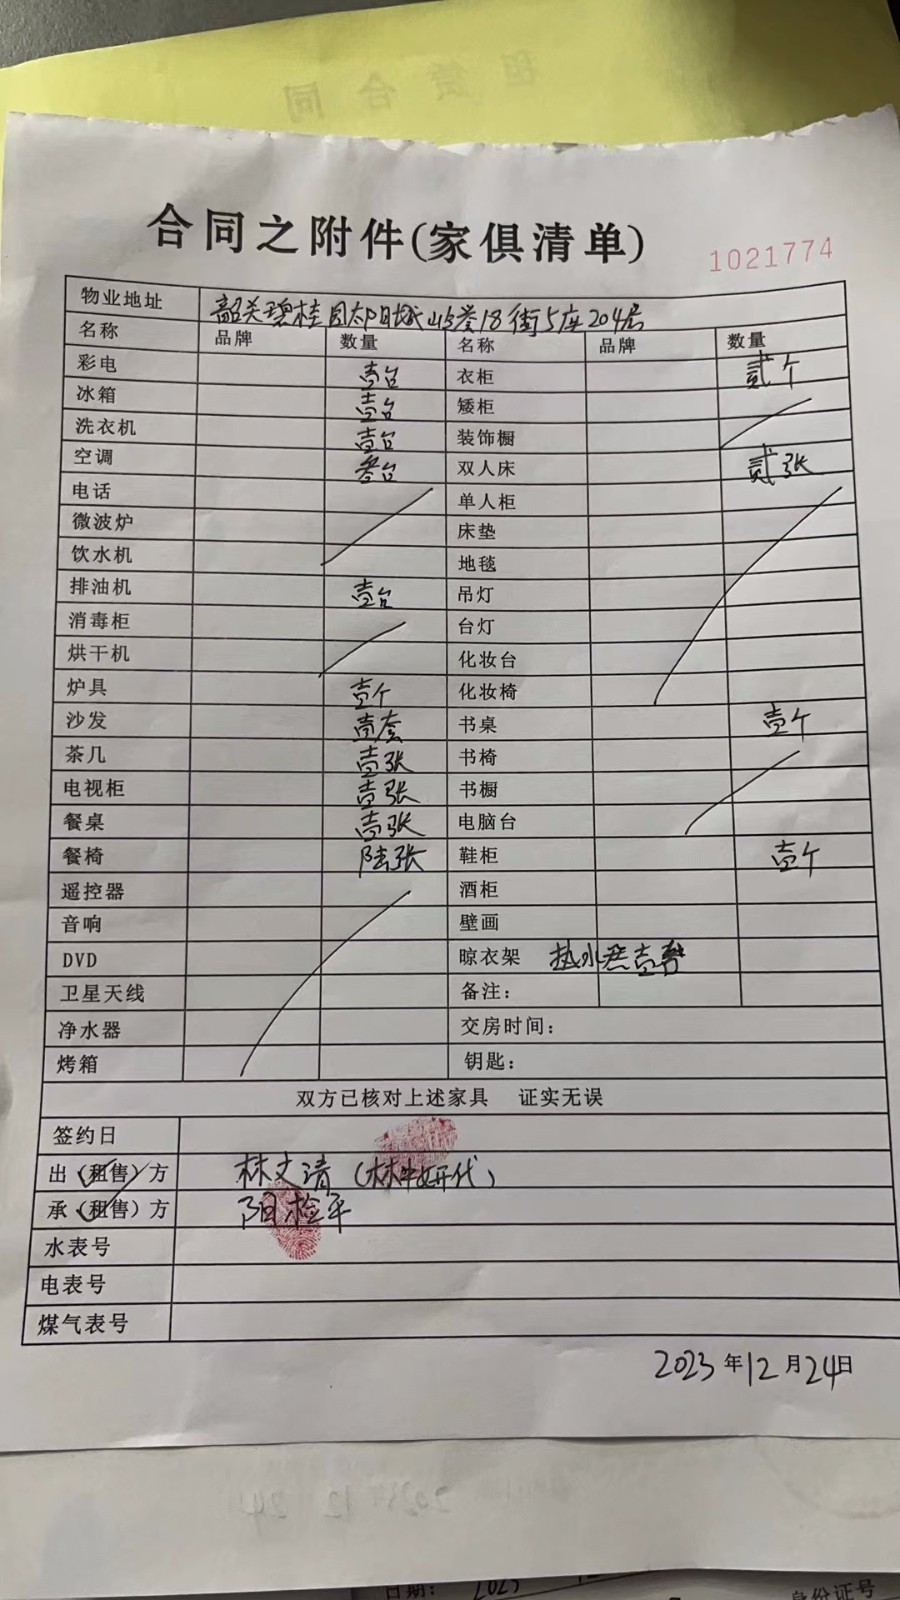 租赁合同
合同之附件(家俱清单)
1021774
物业地址 韶关碧桂园太阳城山誉18街5座204房
名称 品牌 数量 名称 品牌 数量
彩电 壹台 衣柜 贰个
冰箱 壹台 矮柜
洗衣机 壹台 装饰橱
空调 叁台 双人床 贰张
电话 单人柜
微波炉 床垫
饮水机 地毯
排油机 壹台 吊灯
消毒柜 台灯
烘干机 化妆台
炉具 壹个 化妆椅
沙发 壹套 书桌 壹个
茶几 壹张 书椅
电视柜 壹张 书橱
餐桌 壹张 电脑台
餐椅 陆张 鞋柜 壹个
遥控器 酒柜
音响 壁画
DVD 晾衣架 热水
卫星天线 备注：
净水器 交房时间：
烤箱 钥匙：
双方已核对上述家具 证实无误
签约日
出（租售）方 林文清（林 代）
承（租售）方 阳检平
水表号
电表号
煤气表号
2023年12月24日
2023 12 24
日期： 2023
身份证号